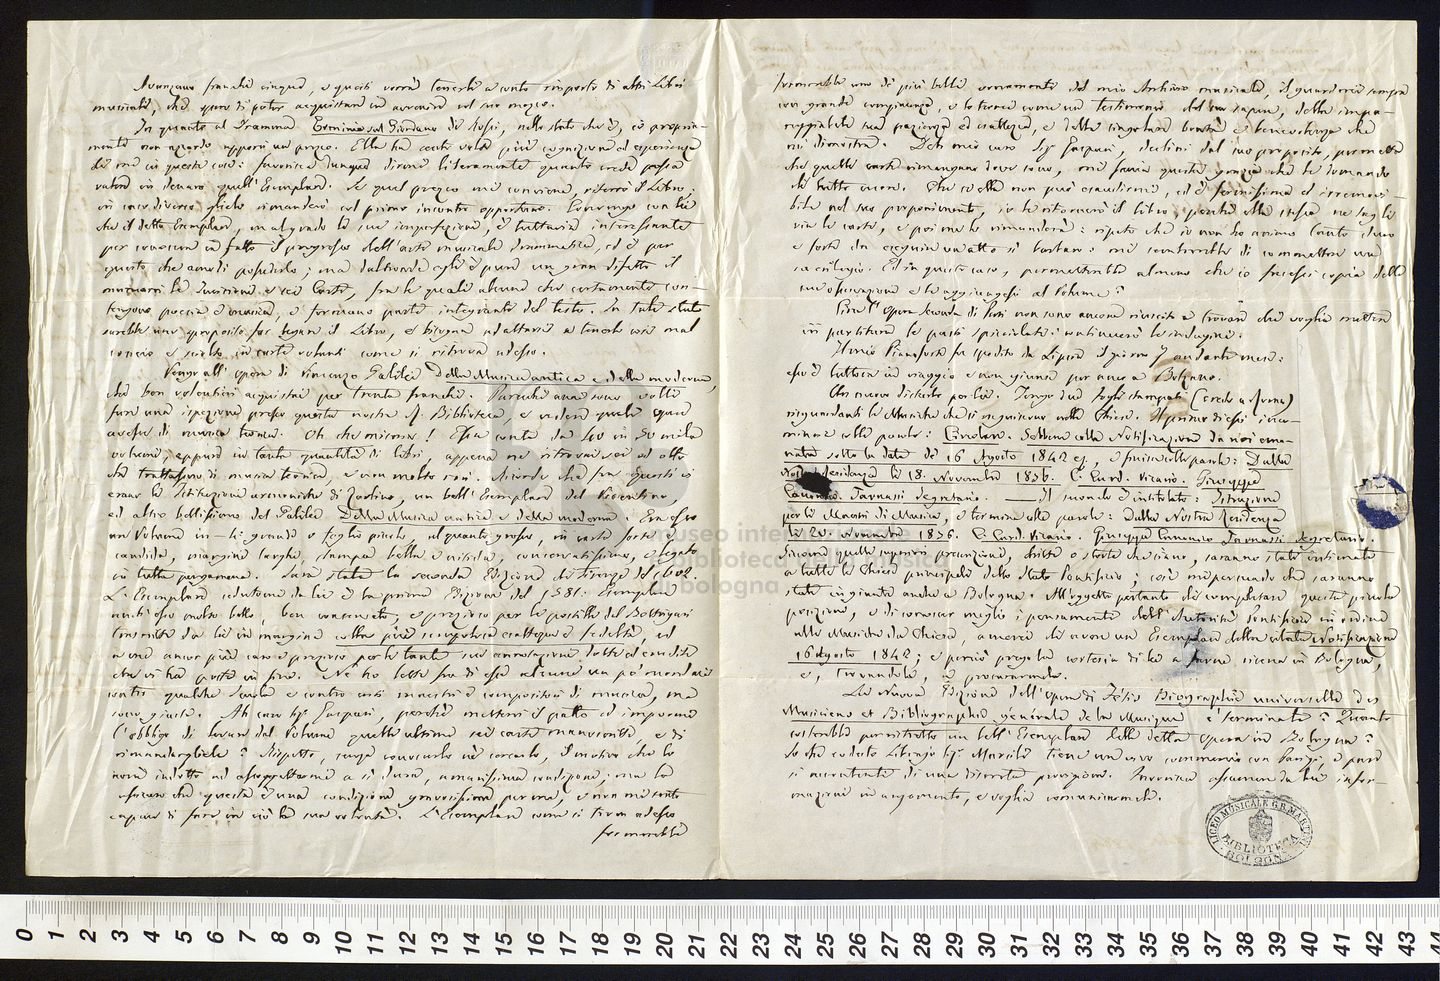 Avanzano franchi cinque, e questi vorrà tenerli a conto importo di altri Libri
musicali, che spero di poter acquistare in avvenire col suo mezzo.
In quanto al Dramma Erminia sul Giordano di Rossi, nello stato che è, ed propria-
mente non azzardo apporvi un prezzo. Ella ha cento volte più cognizione ed esperienza
di me in queste cose: favorisca dunque dirmi liberamente quanto crede possa
valere in denaro quell'Esemplare. Se quel prezzo mi conviene, riterrò il Libro;
in caso diverso glielo rimanderò col primo incontro opportuno. Convengo con Lei
che il detto Esemplare, malgrado le sue imperfezioni, è tuttavia interessante
per conoscere in fatto il progresso dell'arte musicale drammatica, ed è per
questo che amo di possederlo; ma d'altronde egli è pure un gran difetto il
mancarvi le Incisioni e sei Carte, fra le quali alcune che certamente con-
tengono poesia e musica, e formano parte integrante del testo. In tale stato
sarebbe uno sproposito far legare il Libro, e bisogna adattarsi a tenerlo così mal
concio e sciolto in carte volanti come si ritrova adesso.
Vengo all'opera di Vincenzo Galilei Della Musica antica e della moderna,
che ben volentieri acquistai per trenta franchi. Parecchi anni sono volli
fare una ispezione presso questa nostra Biblioteca e vedere quali opere
avesse di musica teorica. Oh che miseria! Essa conta da 40 in 50 mila
volumi, eppure in tanta quantità di libri, appena ne ritrovai sei od otto
che trattassero di musica teorica, e non molto rari. Ricordo che fra questi vi
erano le Istituzioni armoniche di Zarlino, un bell'Esemplare del Vicentino,
ed altro bellissimo del Galilei Della Musica antica e della moderna. Era esso
un Volume in-4° grande o foglio piccolo, alquanto grosso, in carta forte
candida, margini larghi, stampa bella e nitida, conservatissimo, e legato
in tutta pergamena. Sarà stata la seconda Edizione di Firenze del 1602.
L'Esemplare cedutomi da Lei è la prima Edizione del 1581: Esemplare
anch'esso molto bello, ben conservato, e prezioso per le postille del Bottrigari
trascritte da Lei in margine colla più scrupolosa esattezza e fedeltà, ed
a me ancor più caro e prezioso per le tante sue annotazioni dotte ed erudite
che vi ha poste in fine. Ne ho lette fra di esse alcune un po' mordaci
contro qualche scuola e contro certi maestri e compositori di musica, ma
sono giuste. Ah caro Sig. Gaspari, perchè mettervi il patto ed impormi
l'obbligo di levare dal Volume quelle ultime sei carte manoscritte, e di
rimandargliele? Rispetto, senza conoscerlo nè cercarlo, il motivo che lo
avrà indotto ad assoggettarmi a sì dura, amarissima condizione; ma la
assicuro che questa è una condizione gravosissima per me, e non mi sento
capace di fare in ciò la sua volontà. L'Esemplare come si trova adesso
formerebbe
formerebbe uno di più belli ornamenti del mio Archivio musicale, il guarderei sempre
con grande compiacenza, e lo terrei come un testimonio del suo sapere, della impa-
reggiabile sua pazienza ed esattezza, e della singolare bontà e benevolenza che
mi dimostra. Deh mio caro Sig. Gaspari, declini dal suo proposito, permetta
che quelle carte rimangano dove sono, mi faccia questa grazia che le domando
di tutto cuore. Che se ella non può esaudirmi, ed è fermissima ed irremovi-
bile nel suo proponimento, io le ritornerò il libro, perchè ella stessa ne tagli
via le carte, e poi me lo rimanderà: ripeto che io non ho animo tanto duro
e forte da eseguire un atto sì barbaro: mi sembrerebbe di commettere un
sacrilegio. Ed in questo caso, permetterebbe almeno che io facessi copia delle
sue osservazioni e le aggiungessi al Volume?
Per l'Opera Seconda di Rossi non sono ancora riuscito a trovare chi voglia mettere
in partitura le parti spicciolate: continuerò le indagini.
Il mio Pianoforte fu spedito da Lipsia il giorno 7 andante mese:
esso è tuttora in viaggio e non giunse per anco a Bolzano.
Un nuovo disturbo per Lei. Tengo due fogli stampati (credo a Roma)
risguardanti la Musica che si eseguisce nelle Chiese. Il primo di essi inco-
mincia colle parole: Circolare. Sebbene colla Notificazione da noi ema-
nata sotto la data dei 16 Agosto 1842 ec., e finisce colle parole: Dalla
Nostra Residenza li 18. Novembre 1856. C. Card. Vicario. Giuseppe
Canonico Tarnassi Segretario. — Il secondo è intitolato: Istruzione
per li Maestri di Musica, e termina colle parole: Dalla Nostra Residenza
li 20. Novembre 1856. C. Card. Vicario. Giuseppe Canonico Tarnassi Segretario.
Siccome quelle superiori prescrizioni, diritte o storte che siano, saranno state intimate
a tutte le Chiese principali dello Stato Pontificio; così mi persuado che saranno
state ingiunte anche a Bologna. All'oggetto pertanto di completare questa piccola
posizione, e di conoscere meglio i pensamenti dell'Autorità Pontificia in ordine
alla Musica da Chiesa, amerei di avere un Esemplare della citata Notificazione
16 Agosto 1842; e perciò prego la cortesia di Lei a farne ricerca in Bologna,
e, trovandola, a procurarmela.
La Nuova Edizione dell'Opera di Fétis Biographie universelle des
Musiciens et Bibliographie générale de la Musique è terminata? Quanto
costerebbe per netto un bell'Esemplare della detta Opera in Bologna?
So che codesto Libraio Sig. Marsili tiene un vivo commercio con Parigi, e pure
si accontenta di una discreta provvigione. Favorisca assumere da lui infor-
mazioni in argomento, e voglia comunicarmele.
LICEO MUSICALE G.B. MARTINI
BIBLIOTECA
BOLOGNA
museo internazionale
biblioteca della musica
bologna
0 1 2 3 4 5 6 7 8 9 10 11 12 13 14 15 16 17 18 19 20 21 22 23 24 25 26 27 28 29 30 31 32 33 34 35 36 37 38 39 40 41 42 43 44